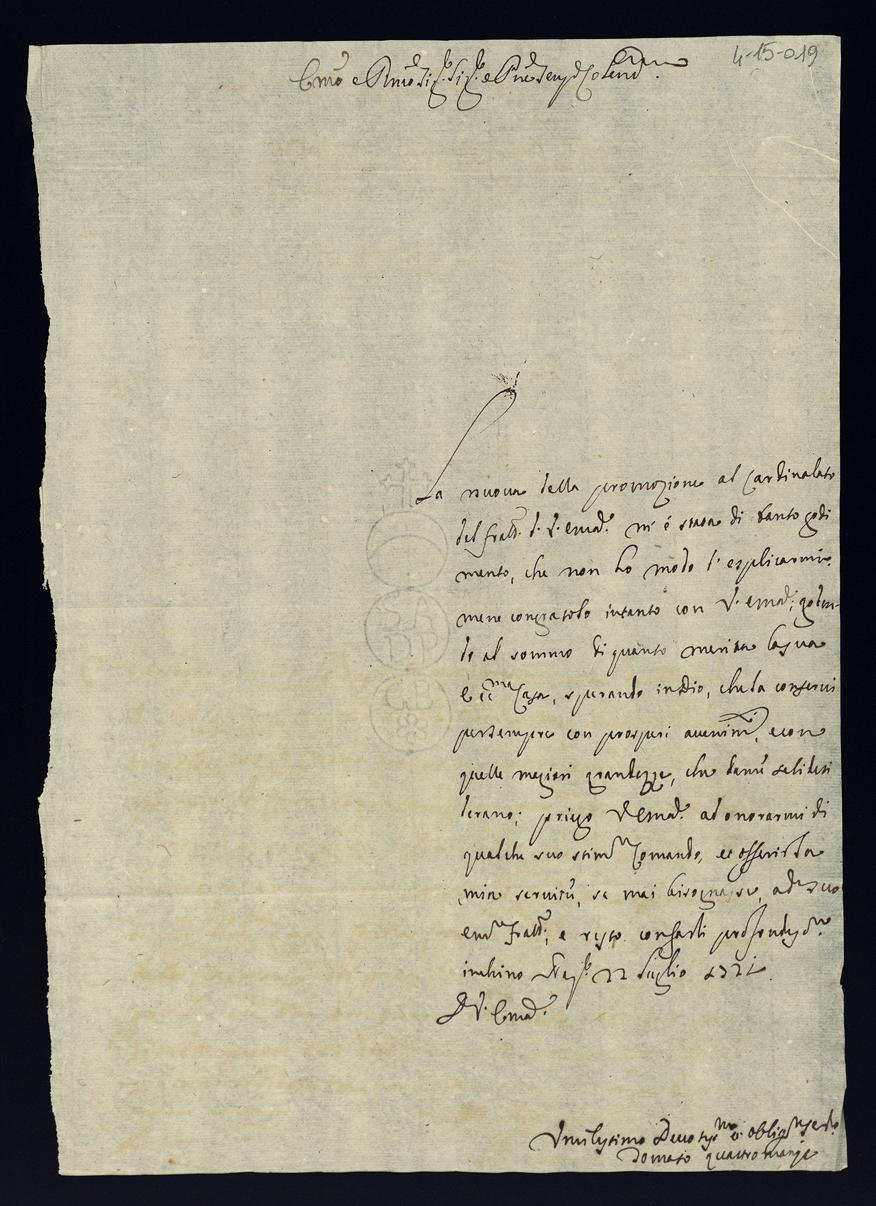 4-15-019
Emo e Rmo Sig.r Sig.r e Pne Colend.mo
La nuova della promozione al Cardinalato
del fratt. d. V. Emã. m'è stata di tanto godi
mento, che non ho modo d'esplicarmi.
mene congratolo intanto con V. Emã; goden-
do al sommo di quanto merita la sua
Ecc.ma Casa, sperando in Dio, che la conservi
per sempre con prosperi avenim.ti, e con
quelle magiori grandezze, che
derano; priego V. Emã. ad onorarmi di
qualche suo stim.mo Comando, et offerir la
mia servitù, se mai bisognasse, ad suo
em.mo fratt.; e resto con farli profondis.mo
inchino Nap. 22 Luglio 1721
D. V. Emã.
Umilissimo Devotiss.mo et oblig.mo ser.re
Donato quattromanj